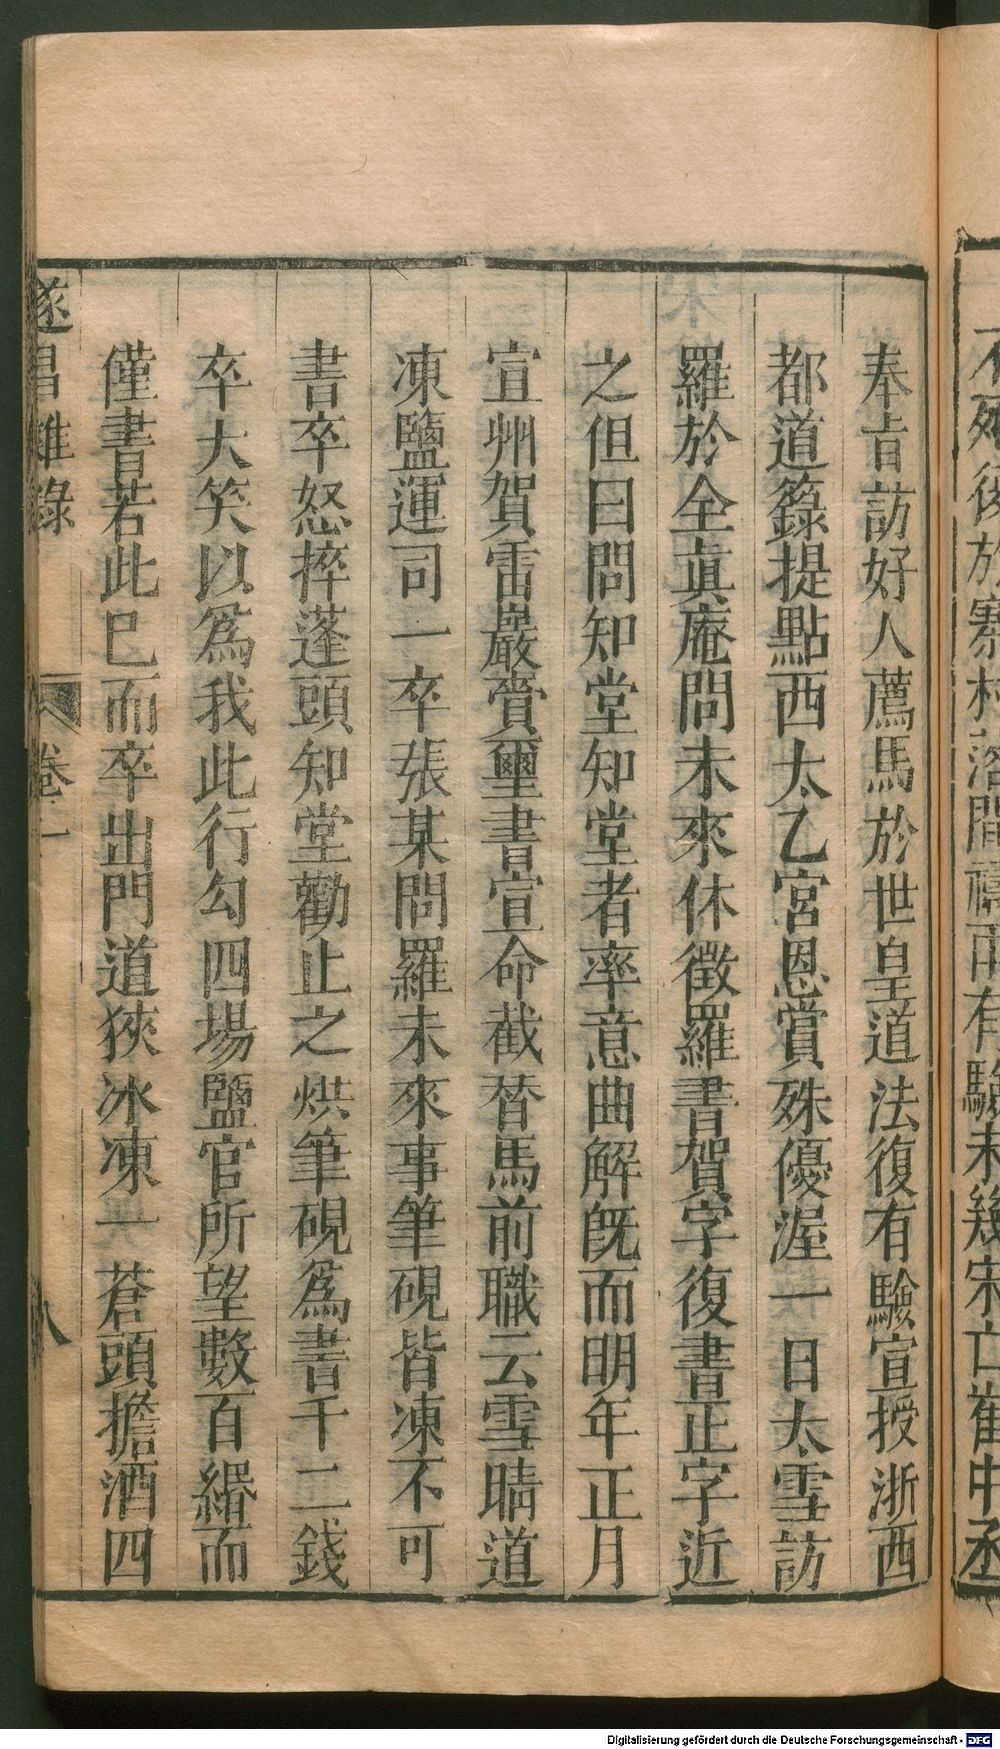 不死後於寨村落間禱雨有驗未幾宋亡崔中丞
奉旨訪好人薦馬於世皇道法復有驗宣授浙西
都道籙提點西太乙宮恩賞殊優渥一日太雪訪
羅於全真庵問未來休徵羅書賀字復書正字近
之但曰問知堂知堂者率意曲解旣而明年正月
宣州賀雷巖賫璽書宣命截替馬前職云雪晴道
凍鹽運司一卒張某問羅未來事筆硯皆凍不可
書卒怒捽蓬頭知堂勸止之烘筆硯爲書千二錢
卒大笑以爲我此行勾四場鹽官所望數百緡而
僅書若此已而卒出門道狹冰凍一蒼頭擔酒四
遂昌雜錄
卷一
八
Digitalisierung gefördert durch die Deutsche Forschungsgemeinschaft - DFG